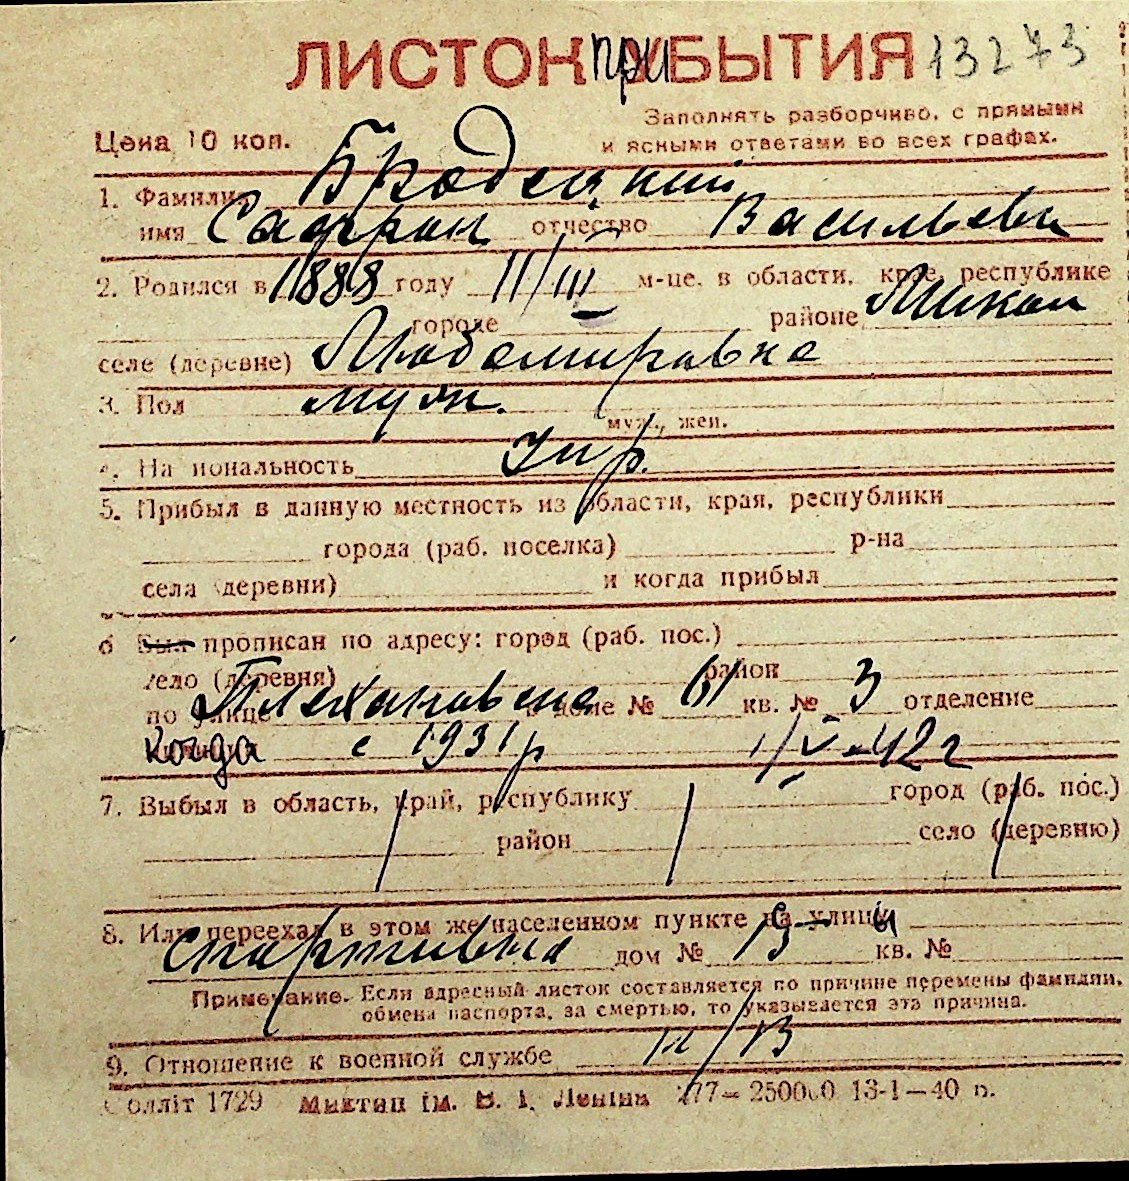 ЛИСТОК приБЫТИЯ 13273
Заполнять разборчиво, с прямыми
Цена 10 коп. и ясными ответами во всех графах.
1. Фамилия Бродецкий
имя Сафрон отчество Васильев
2. Родился в 1888 году 11/III м-це, в области, крае, республике
городе районе
селе (деревне) Любомировке
3. Пол муж.
муж., жен.
4. Национальность Укр.
5. Прибыл в данную местность из области, края, республики
города (раб. поселка) р-на
села (деревни) и когда прибыл
6 Был прописан по адресу: город (раб. пос.)
село (деревня) район
по улице Плехановская в доме № 61 кв. № 3 отделение
когда с 1931 р 1/V-42 г
7. Выбыл в область, край, республику город (раб. пос.)
район село (деревню)
8. Или переехал в этом же населенном пункте на улицу
Спортивна дом № 13 кв. №
Примечание. Если адресный листок составляется по причине перемены фамилии,
обмена паспорта, за смертью, то указывается эта причина.
9. Отношение к военной службе н/в
Облліт 1729 Миктип ім. В. І. Леніна 277—250000 13-1—40 р.